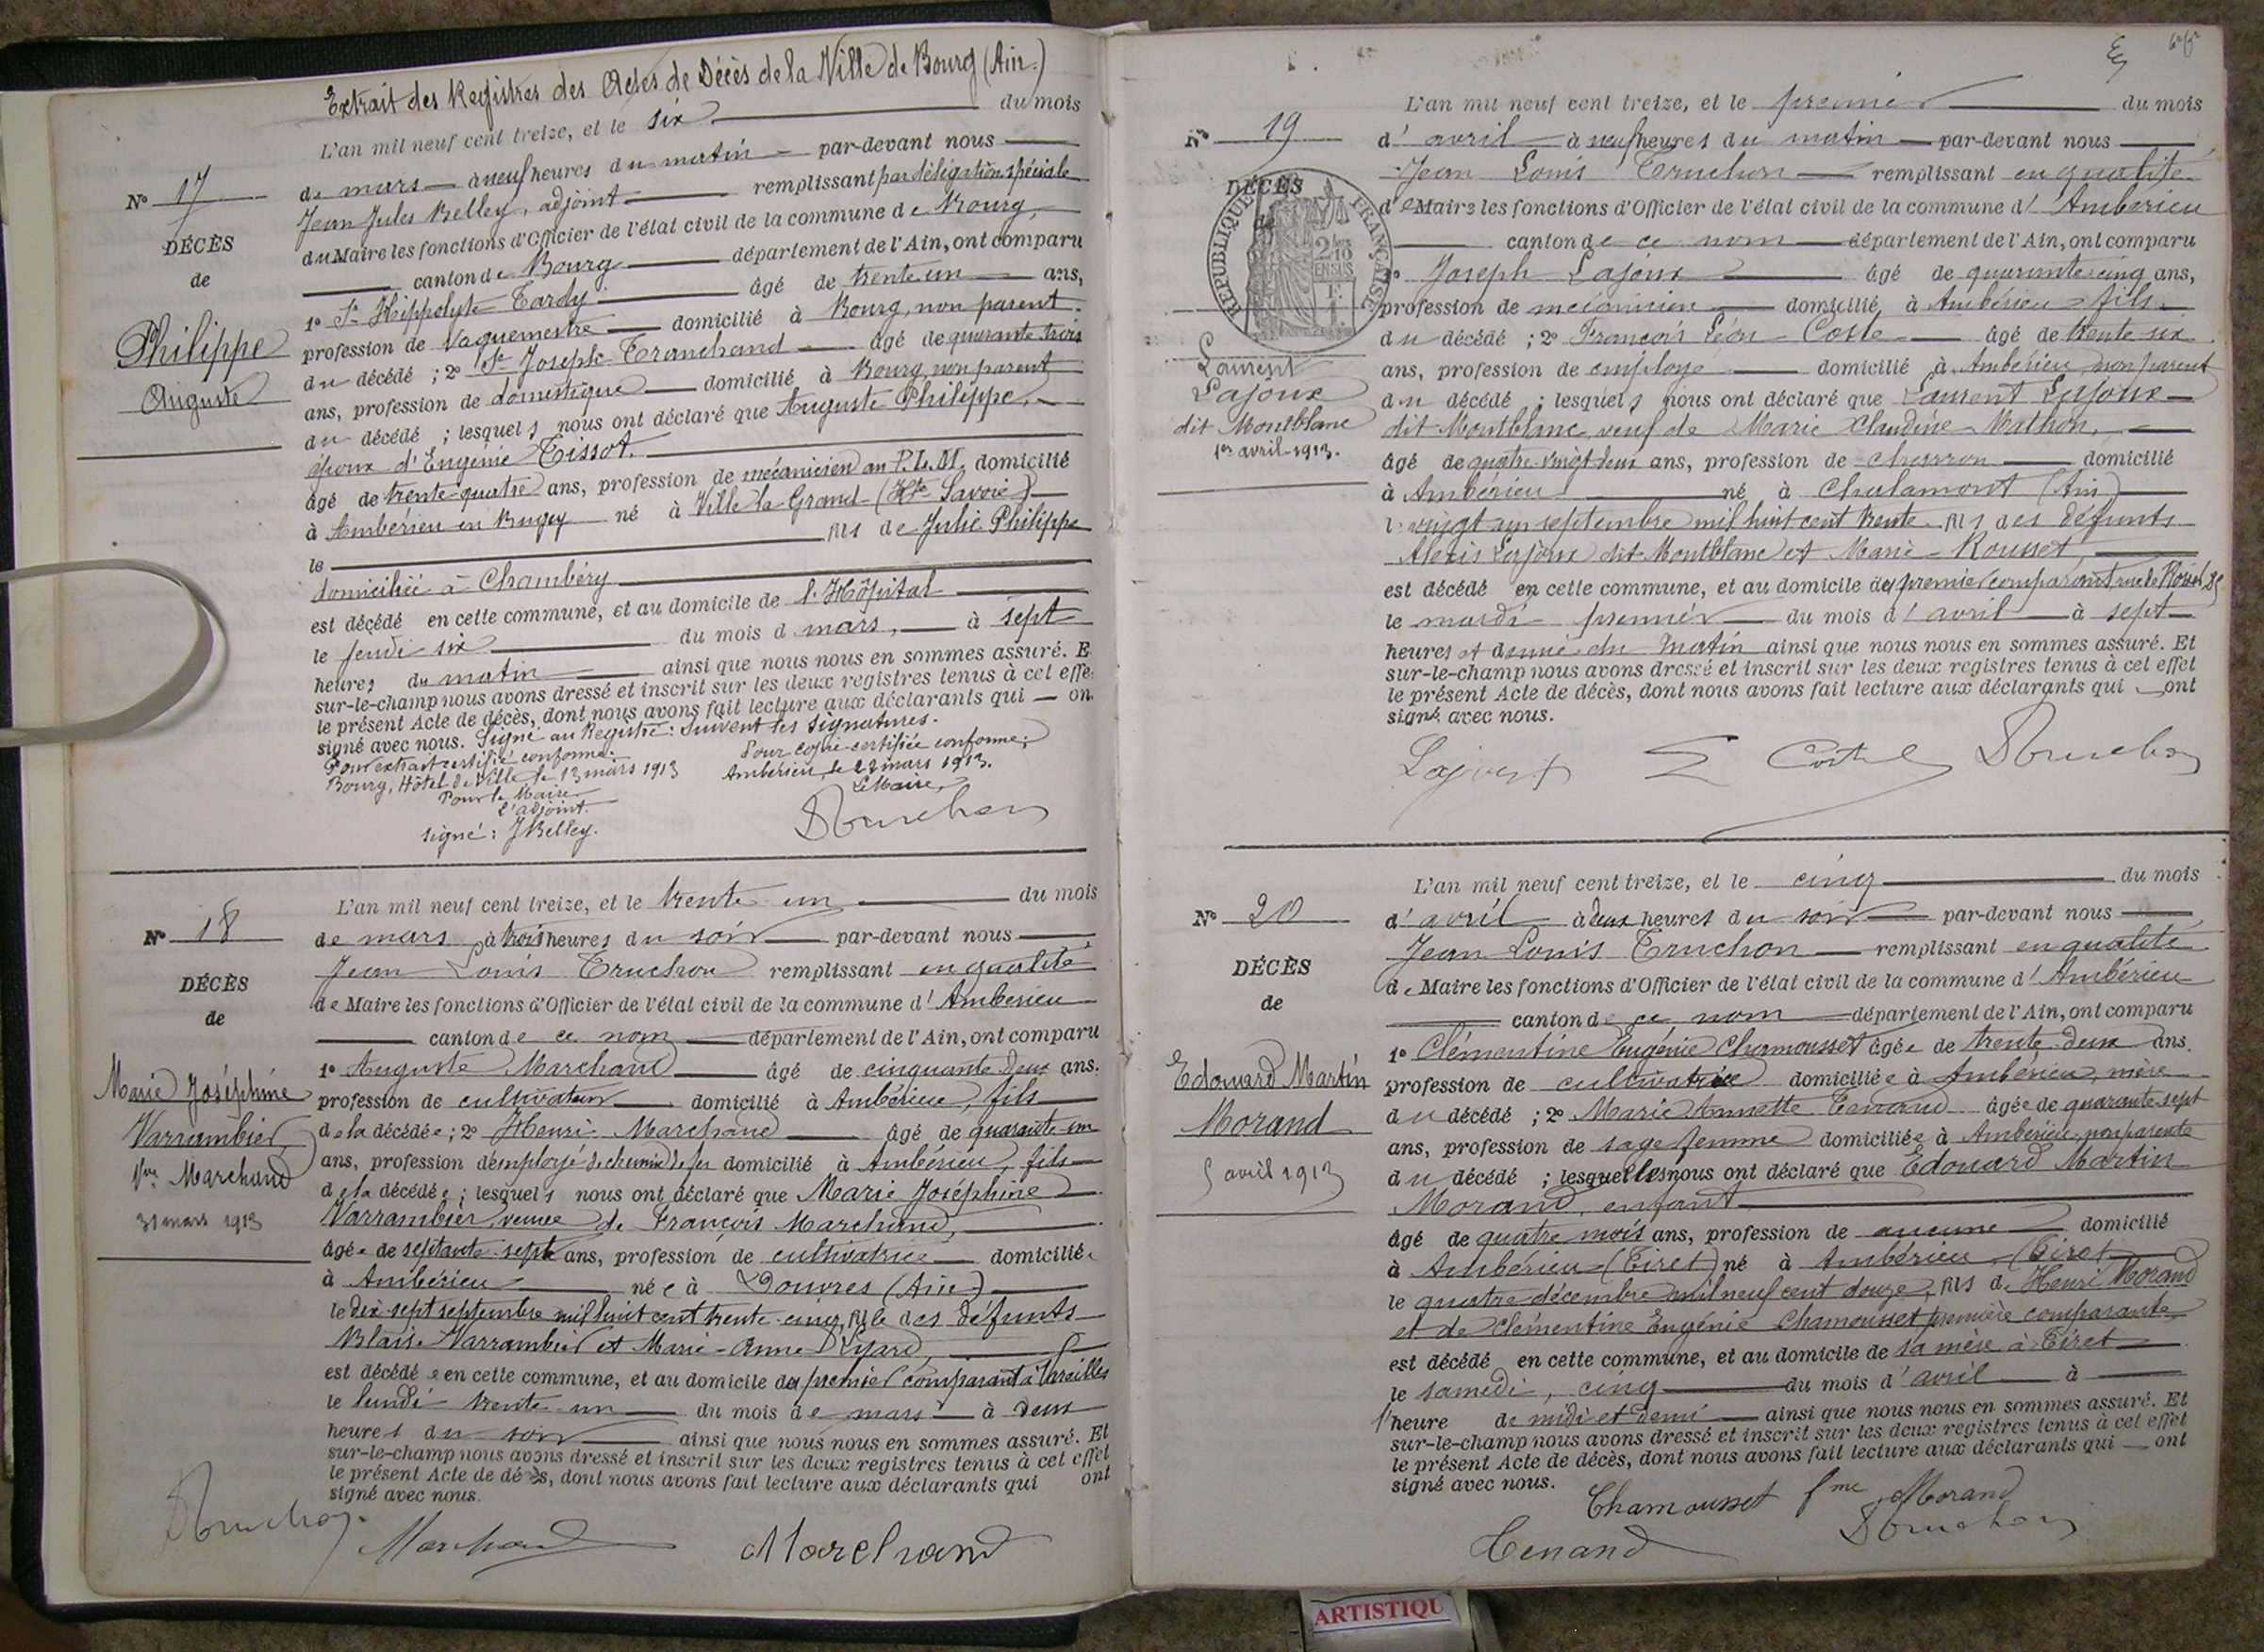 Extrait des Registres des Actes de Décès de la Ville de Bourg (Ain.)
L'an mil neuf cent treize, et le six du mois
de mars à neuf heures du matin par-devant nous
Jean Jules Belley, adjoint remplissant par délégation spéciale
du Maire les fonctions d'Officier de l'état civil de la commune de Bourg,
canton de Bourg département de l'Ain, ont comparu
1° Sr Hippolyte Tardy âgé de trente un ans,
profession de Vaguemestre domicilié à Bourg, non parent
du décédé ; 2° Sr Joseph Tranchand âgé de quarante trois
ans, profession de domestique domicilié à Bourg, non parent
du décédé ; lesquels nous ont déclaré que Auguste Philippe,
époux d'Eugénie Tissot.
âgé de trente-quatre ans, profession de mécanicien au P.L.M. domicilié
à Ambérieu en Bugey né à Ville la Grand (Hte Savoie)
le fils de Julie Philippe
domiciliée à Chambéry
est décédé en cette commune, et au domicile de l'Hôpital
le jeudi six du mois d mars, à sept
heures du matin ainsi que nous nous en sommes assuré. E
sur-le-champ nous avons dressé et inscrit sur les deux registres tenus à cet effe
le présent Acte de décès, dont nous avons fait lecture aux déclarants qui on
signé avec nous. Signé au Registre : Suivent les signatures.
Pour extrait certifié conforme.
Bourg, Hôtel de Ville le 13 mars 1913
Pour le Maire
L'adjoint.
signé : J Belley.
Pour copie certifiée conforme ;
Ambérieu, le 22 mars 1913.
Le Maire,
Truchon
N° 17
DÉCÈS
de
Philippe
Auguste
L'an mil neuf cent treize, et le trente un du mois
de mars à trois heures du soir par-devant nous
Jean Louis Truchon remplissant en qualité
de Maire les fonctions d'Officier de l'état civil de la commune d' Ambérieu
canton de ce nom département de l'Ain, ont comparu
1° Auguste Marchand âgé de cinquante deux ans.
profession de cultivateur domicilié à Ambérieu, fils
de la décédée ; 2° Henri Marchand âgé de quarante un
ans, profession d'employé de chemin de fer domicilié à Ambérieu, fils
de la décédée ; lesquels nous ont déclaré que Marie Joséphine
Varrambier, veuve de François Marchand,
âgée de septante-sept ans, profession de cultivatrice domiciliée
à Ambérieu née à Douvres (Ain)
le dix sept septembre mil huit cent trente-cinq, fille des défunts
Blaise Varrambier et Marie-Anne Lyard,
est décédée en cette commune, et au domicile du premier comparant à Vareilles
le lundi trente-un du mois de mars à deux
heures du soir ainsi que nous nous en sommes assuré. Et
sur-le-champ nous avons dressé et inscrit sur les deux registres tenus à cet effet
le présent Acte de décès, dont nous avons fait lecture aux déclarants qui ont
signé avec nous.
Truchon
Marchand
Marchand
N° 18
DÉCÈS
de
Marie Joséphine
Varrambier,
Vve Marchand
31 mars 1913
L'an mil neuf cent treize, et le premier du mois
d' avril à neuf heures du matin par-devant nous
Jean Louis Truchon remplissant en qualité
de Maire les fonctions d'Officier de l'état civil de la commune d' Ambérieu
canton de ce nom département de l'Ain, ont comparu
1° Joseph Lajoux âgé de quarante-cinq ans,
profession de mécanicien domicilié à Ambérieu fils
du décédé ; 2° François Léon Coste âgé de trente six
ans, profession de employé domicilié à Ambérieu, non parent
du décédé ; lesquels nous ont déclaré que Laurent Lajoux
dit Montblanc, veuf de Marie Claudine Mathon,
âgé de quatre-vingt deux ans, profession de charron domicilié
à Ambérieu né à Chalamont (Ain)
le vingt un septembre mil huit cent trente fils des défunts
Alexis Lajoux dit Montblanc et Marie Rousset,
est décédé en cette commune, et au domicile du premier comparant
le mardi premier du mois d' avril à sept
heures et demie du matin ainsi que nous nous en sommes assuré. Et
sur-le-champ nous avons dressé et inscrit sur les deux registres tenus à cet effet
le présent Acte de décès, dont nous avons fait lecture aux déclarants qui ont
signé avec nous.
Lajoux
Coste
Truchon
N° 19
DÉCÈS
de
RÉPUBLIQUE FRANÇAISE
2/10
EN SUS
Laurent
Lajoux
dit Montblanc
1er avril-1913.
L'an mil neuf cent treize, et le cinq du mois
d' avril à deux heures du soir par-devant nous
Jean Louis Truchon remplissant en qualité
de Maire les fonctions d'Officier de l'état civil de la commune d' Ambérieu
canton de ce nom département de l'Ain, ont comparu
1° Clémentine Eugénie Chamousset âgée de trente-deux ans.
profession de cultivatrice domiciliée à Ambérieu, mère
du décédé ; 2° Marie Annette Tenand âgée de quarante sept
ans, profession de sage femme domiciliée à Ambérieu, non parente
du décédé ; lesquelles nous ont déclaré que Edouard Martin
Morand, enfant
âgé de quatre mois ans, profession de aucune domicilié
à Ambérieu (Tiret) né à Ambérieu (Tiret)
le quatre décembre mil neuf cent douze, fils de Henri Morand
et de Clémentine Eugénie Chamousset première comparante
est décédé en cette commune, et au domicile de sa mère à Tiret
le samedi, cinq du mois d'avril à
l'heure de midi et demi ainsi que nous nous en sommes assuré. Et
sur-le-champ nous avons dressé et inscrit sur les deux registres tenus à cet effet
le présent Acte de décès, dont nous avons fait lecture aux déclarants qui ont
signé avec nous.
Chamousset fme Morand
Tenand
Truchon
N° 20
DÉCÈS
de
Edouard Martin
Morand
5 avril 1913
ARTISTIQU